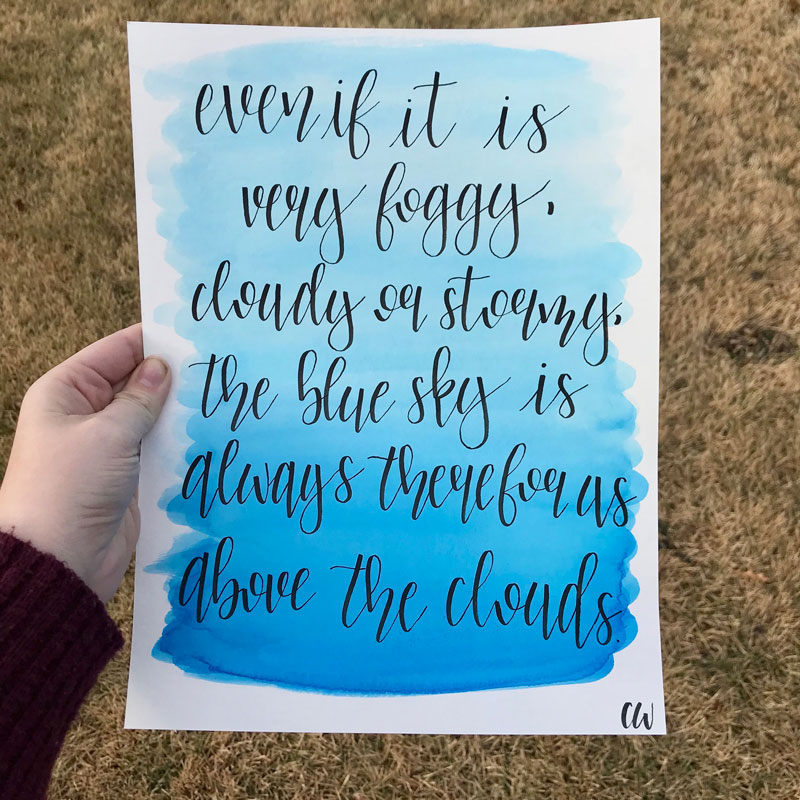 even if it is
very foggy,
cloudy or stormy,
the blue sky is
always there for us
above the clouds.
CW